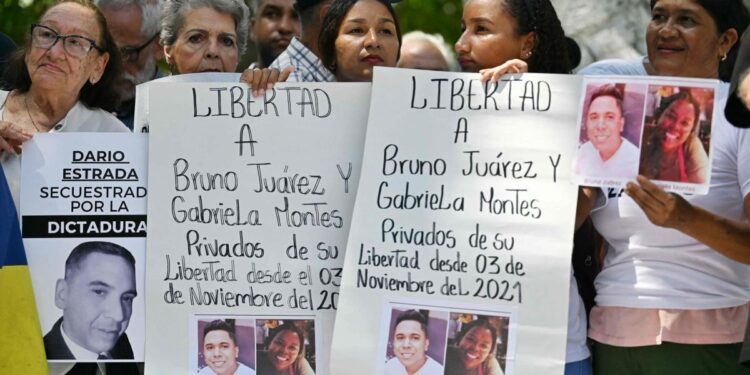 DARIO
ESTRADA
SECUESTRADO
POR LA
DICTADURA
LIBERTAD
A
Bruno Juárez Y
Gabriela Montes
Privados de su
Libertad desde el 03
de Noviembre del
LIBERTAD
A
Bruno Juárez Y
Gabriela Montes
Privados de su
Libertad desde 03 de
Noviembre del 2021
Bruno Juárez
Montes